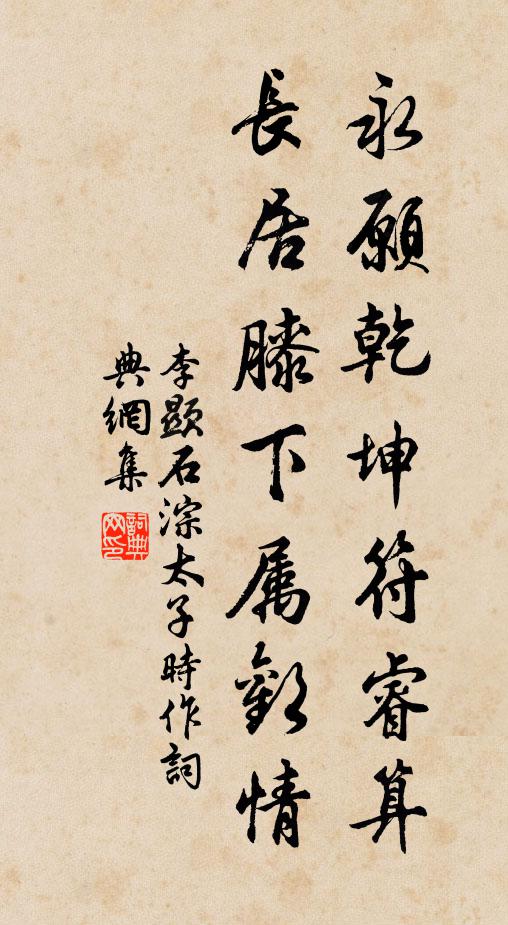 永願乾坤符睿算
長居膝下属歡情
李顯石淙太子時作詞
典網集
詞典網印